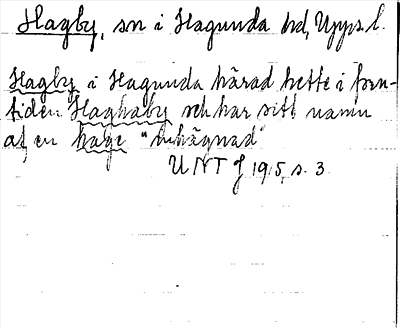 Hagby, sn i Hagunda hd, Upps. l.
Hagby i Hagunda härad hette i forn-
tiden Haghaby och har sitt namn
af en hage "inhägnad"
UNT J 1915, s. 3